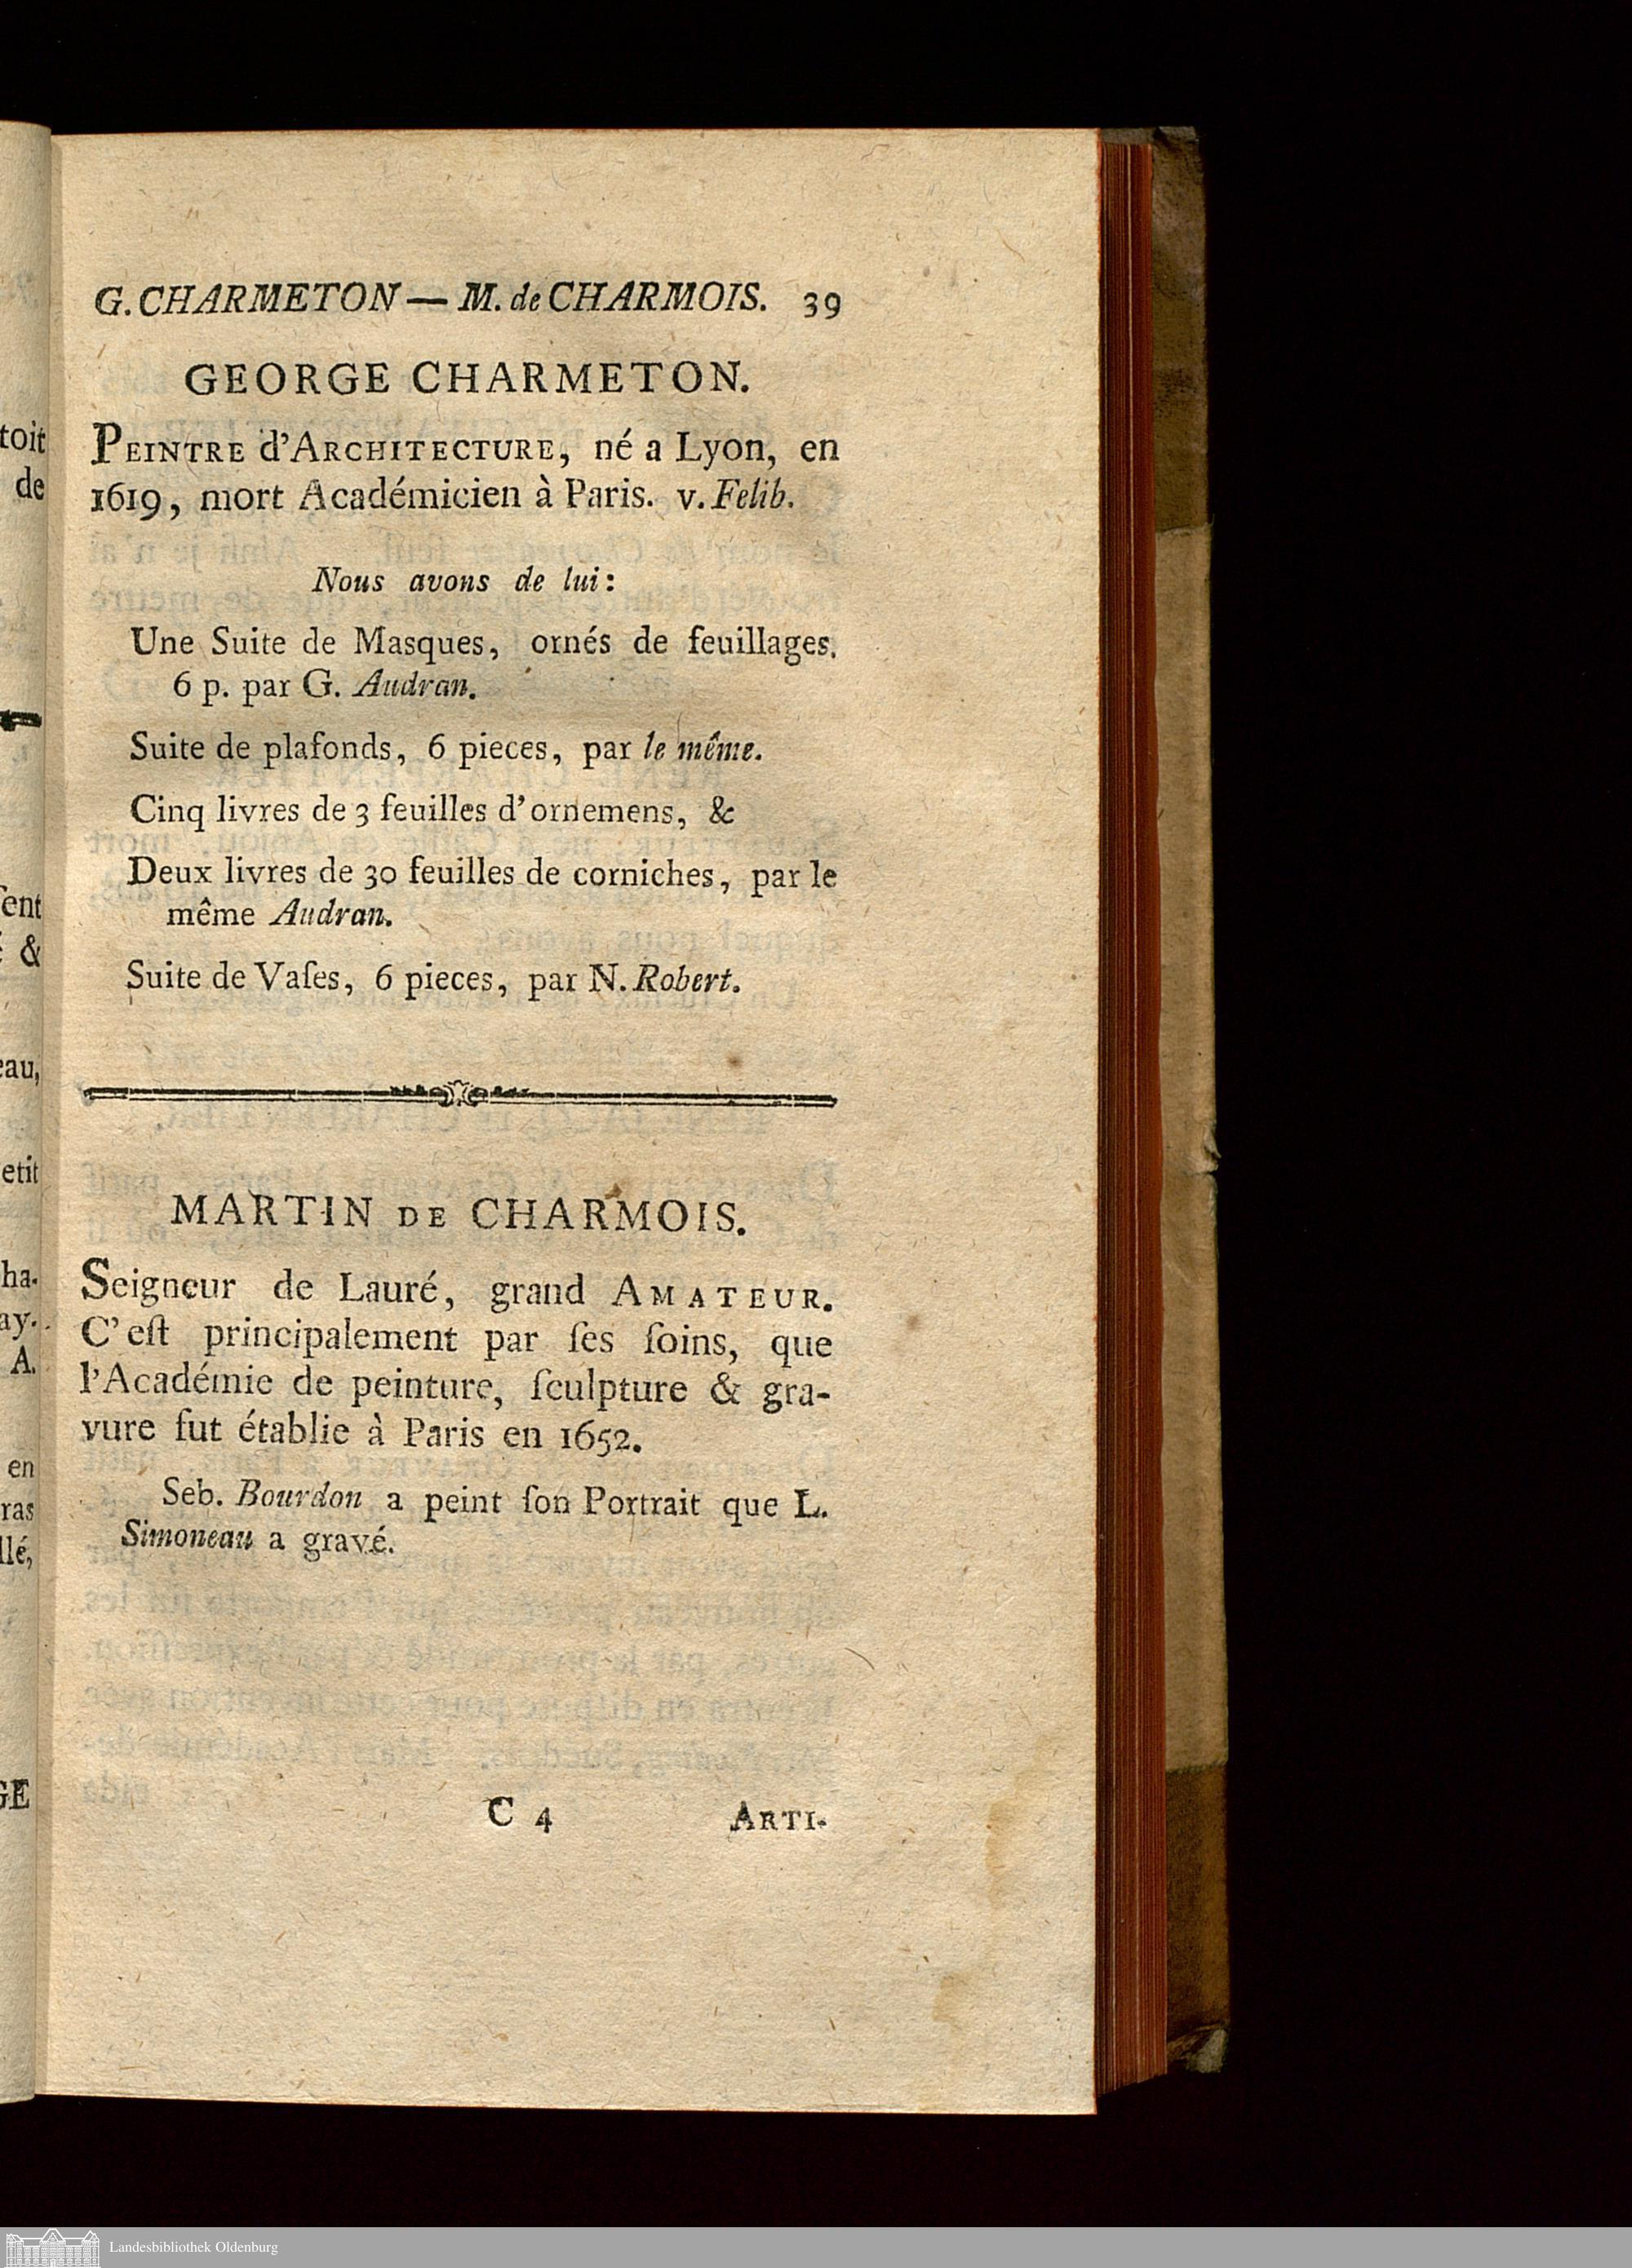 G. CHARMETON — M. de CHARMOIS. 39
GEORGE CHARMETON.
PEINTRE d'ARCHITECTURE, né a Lyon, en
1619, mort Académicien à Paris. v. Felib.
Nous avons de lui:
Une Suite de Masques, ornés de feuillages.
6 p. par G. Audran.
Suite de plafonds, 6 pieces, par le même.
Cinq livres de 3 feuilles d'ornemens, &
Deux livres de 30 feuilles de corniches, par le
même Audran.
Suite de Vaſes, 6 pieces, par N. Robert.
MARTIN DE CHARMOIS.
Seigneur de Lauré, grand AMATEUR.
C'eſt principalement par ſes ſoins, que
l'Académie de peinture, ſculpture & gra-
vure fut établie à Paris en 1652.
Seb. Bourdon a peint ſon Portrait que L.
Simoneau a gravé.
C 4 ARTI-
toit
de
ſent
&
eau,
etit
ha-
ay.
A.
en
ras
llé,
GE
Landesbibliothek Oldenburg